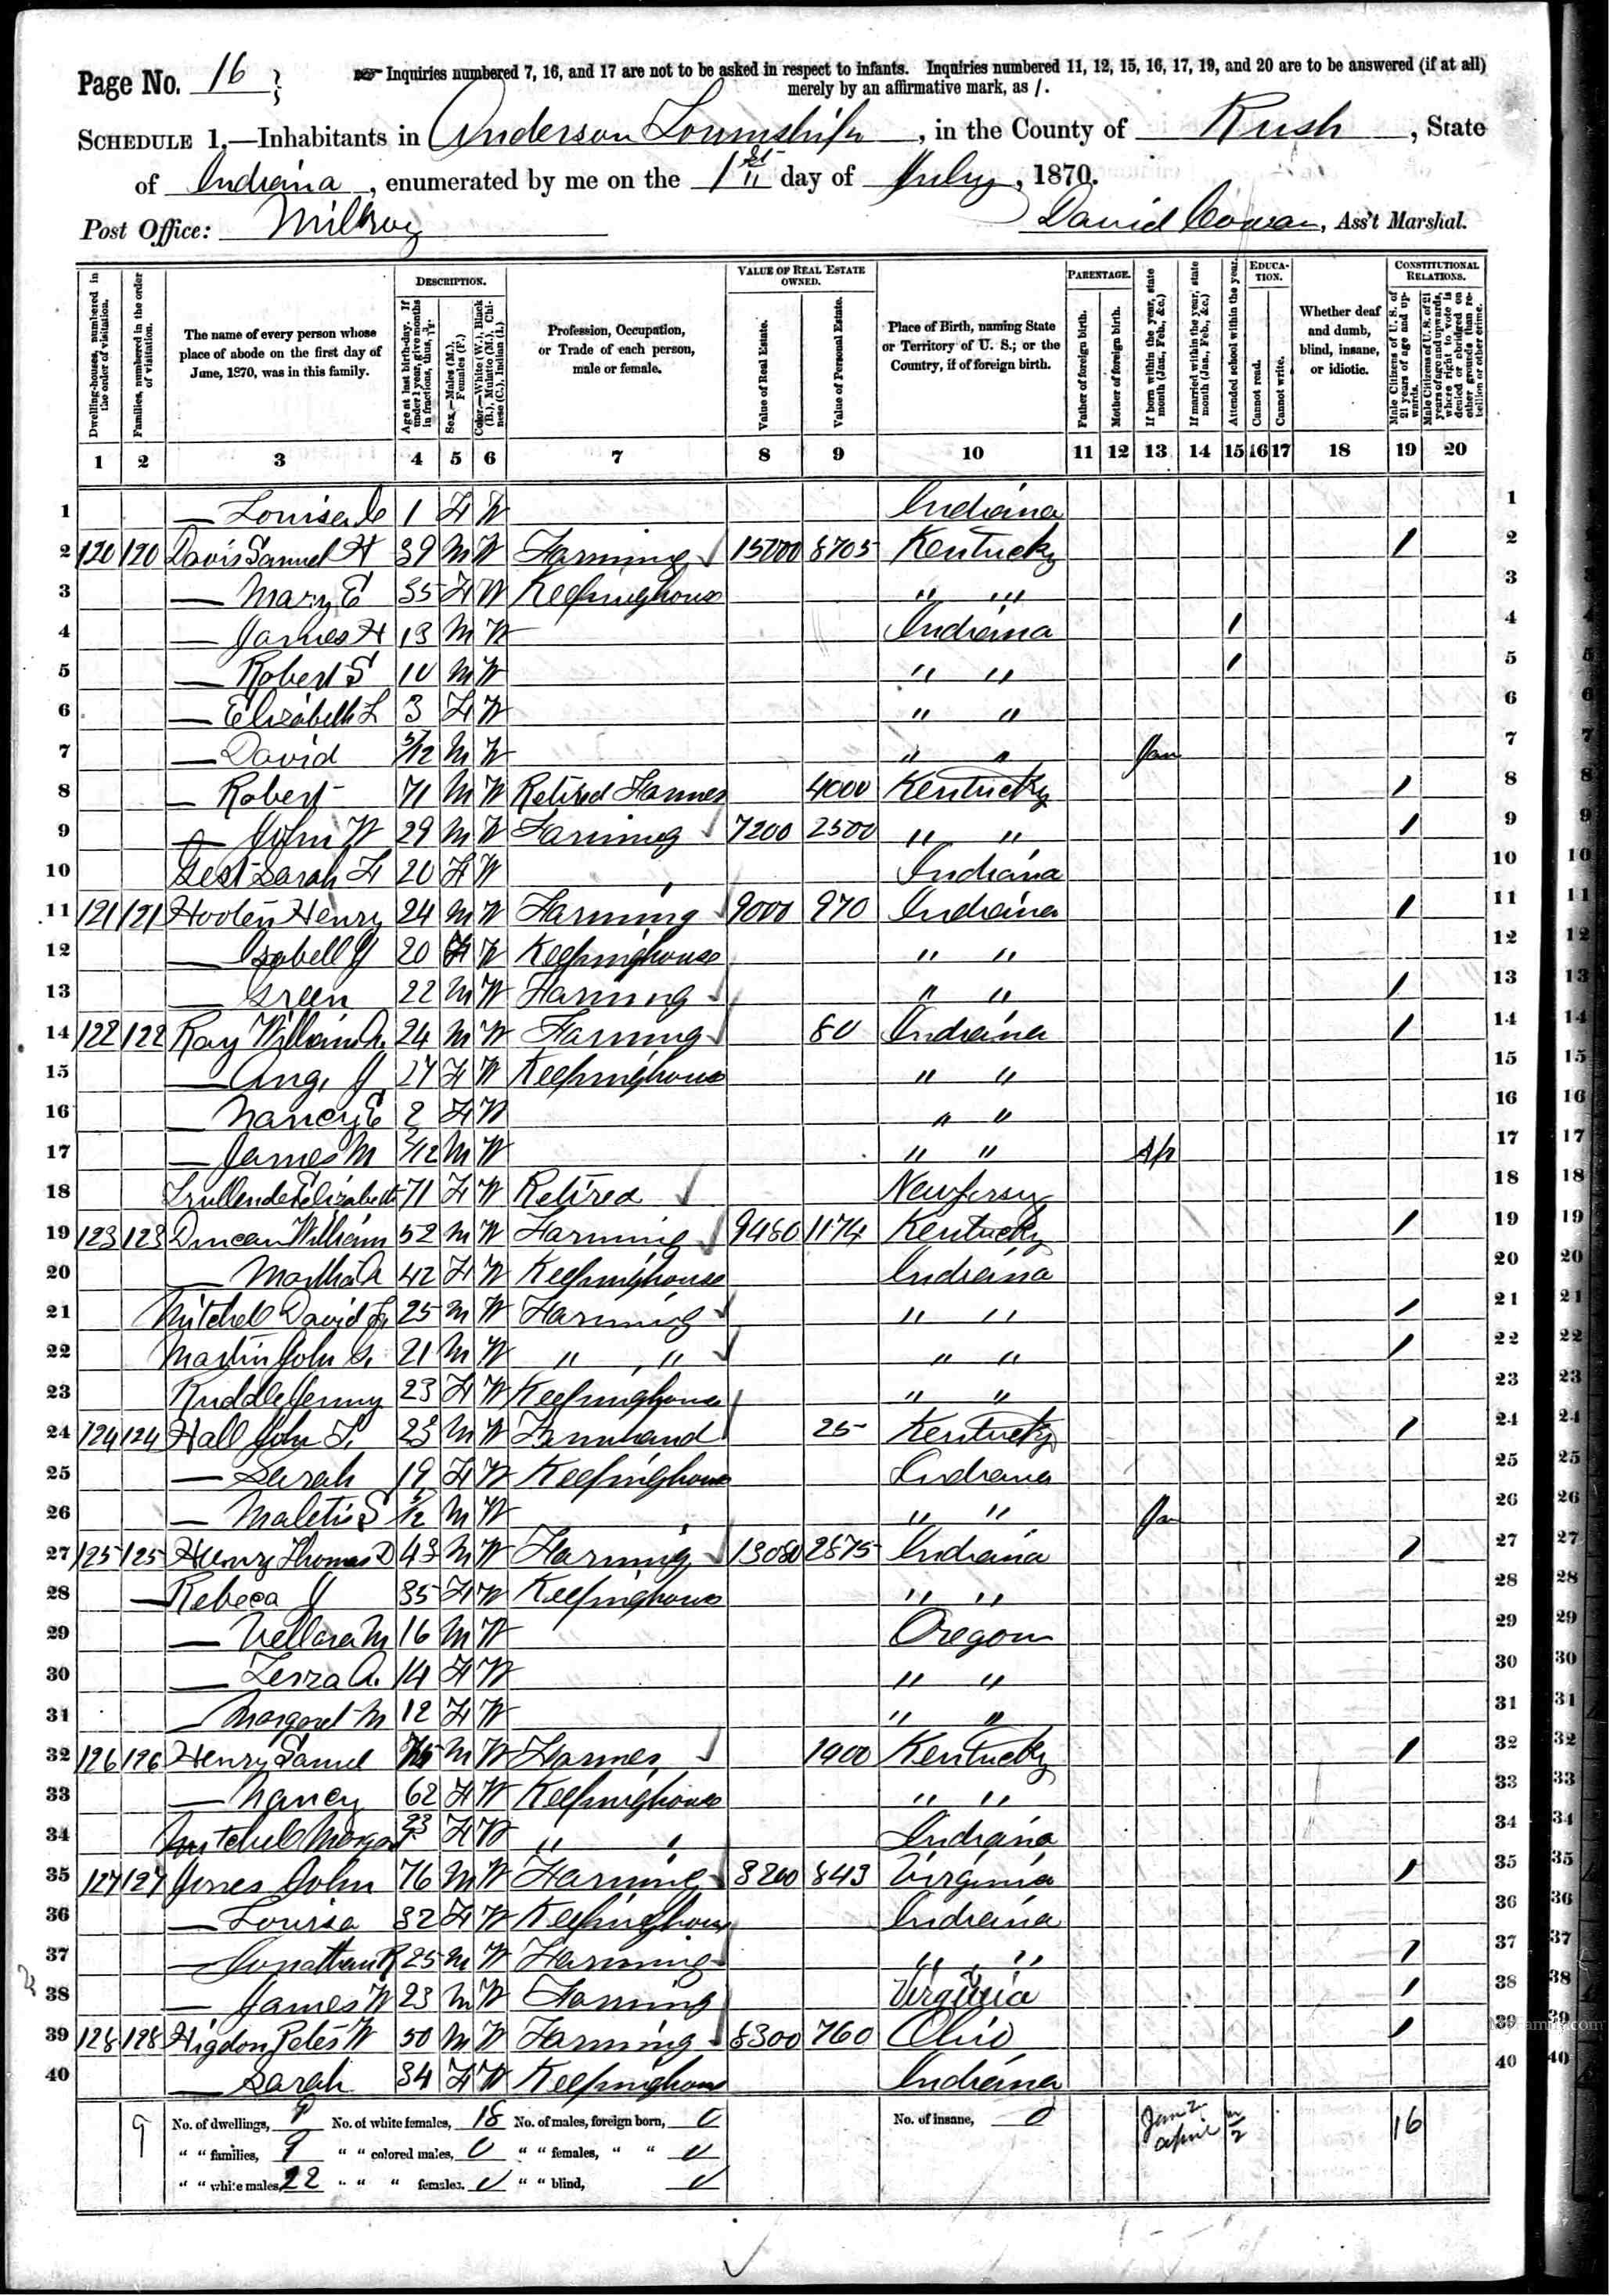 Page No. 16
Inquiries numbered 7, 16, and 17 are not to be asked in respect to infants. Inquiries numbered 11, 12, 15, 16, 17, 19, and 20 are to be answered (if at all)
merely by an affirmative mark, as /.
SCHEDULE 1.—Inhabitants in Anderson Township, in the County of Rush, State
of Indiana, enumerated by me on the 1st day of July, 1870.
Post Office: Milroy
David Cowan, Ass't Marshal.
Dwelling-houses, numbered in the order of visitation.
Families, numbered in the order of visitation.
The name of every person whose place of abode on the first day of June, 1870, was in this family.
DESCRIPTION.
Age at last birth-day. If under 1 year, give months in fractions, thus, 3/12.
Sex.—Males (M.), Females (F.)
Color.—White (W.), Black (B.), Mulatto (M.), Chinese (C.), Indian (I.)
Profession, Occupation, or Trade of each person, male or female.
VALUE OF REAL ESTATE OWNED.
Value of Real Estate.
Value of Personal Estate.
Place of Birth, naming State or Territory of U. S.; or the Country, if of foreign birth.
PARENTAGE.
Father of foreign birth.
Mother of foreign birth.
If born within the year, state month (Jan., Feb., &c.)
If married within the year, state month (Jan., Feb., &c.)
Attended school within the year.
EDUCATION.
Cannot read.
Cannot write.
Whether deaf and dumb, blind, insane, or idiotic.
CONSTITUTIONAL RELATIONS.
Male Citizens of U. S. of 21 years of age and upwards.
Male Citizens of U. S. of 21 years of age and upwards, where right to vote is denied or abridged on other grounds than rebellion or other crime.
1 2 3 4 5 6 7 8 9 10 11 12 13 14 15 16 17 18 19 20
1 — Louisa 1 F W Indiana 1
2 120 120 Davis Samuel H 39 M W Farming 15000 8705 Kentucky / 2
3 — Mary E 35 F W Keepinghouse " " 3
4 — James H 13 M W Indiana / 4
5 — Robert S 10 M W " " / 5
6 — Elizabeth L 3 F W " " 6
7 — David 5/12 M W " " Jan 7
8 — Robert 71 M W Retired Farmer 4000 Kentucky / 8
9 — John W 29 M W Farming 7200 2500 " " / 9
10 Sarah F 20 F W Indiana 10
11 121 121 Hooten Henry 24 M W Farming 9000 970 Indiana / 11
12 — Isabell J 20 F W Keepinghouse " " 12
13 — Green 22 M W Farming " " / 13
14 122 122 Ray William A. 24 M W Farming 80 Indiana / 14
15 — Ang. J 27 F W Keepinghouse " " 15
16 — Nancy E 2 F W " " 16
17 — James M 2/12 M W " " Ap 17
18 Elizabeth 71 F W Retired New Jersey 18
19 123 123 Duncan William 52 M W Farming 9480 1174 Kentucky / 19
20 — Martha A 42 F W Keepinghouse Indiana 20
21 Mitchel David 25 M W Farming " " / 21
22 Martin John 21 M W " " " " / 22
23 Ruddle Jenny 23 F W Keepinghouse " " 23
24 124 124 Hall John 23 M W Farmhand 25 Kentucky / 24
25 — Sarah 19 F W Keepinghouse Indiana 25
26 — S 5/12 M W " " Jan 26
27 125 125 Henry Thomas D 43 M W Farming 13080 2875 Indiana / 27
28 — Rebeca J 35 F W Keepinghouse " " 28
29 — M 16 M W Oregon 29
30 — A. 14 F W " " 30
31 — Margaret M 12 F W " " 31
32 126 126 Henry Samel M W Farmer 1900 Kentucky / 32
33 — Nancy 62 F W Keepinghouse " " 33
34 Mitchel 23 F W " " Indiana 34
35 127 127 Jones John 76 M W Farming 8200 843 Virginia / 35
36 — Louisa 32 F W Keepinghouse Indiana 36
37 — Jonathan R 25 M W Farming " " / 37
38 — James W 23 M W Farming Virginia / 38
39 128 128 Higdon Peter W 50 M W Farming 8300 760 Ohio / 39
40 — Sarah 34 F W Keepinghouse Indiana 40
9 No. of dwellings, 9 No. of white females, 18 No. of males, foreign born, 0 No. of insane, 0 Jan 2 april 2 16
" " families, 9 " " colored males, 0 " " females, " " 0
" " white males, 22 " " " females, 0 " " blind, 0